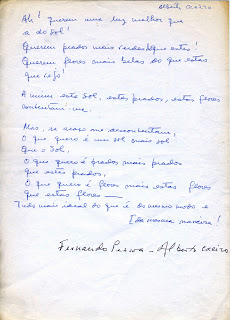 Alberto Caeiro
Ah! querem uma luz melhor que
a do Sol!
Querem prados mais verdes que estes!
Querem flores mais belas do que estas
que vejo!
A mim este Sol, estes prados, estas flores
contentam-me.
Mas, se acaso me descontentam,
O que quero é um sol mais sol
Que o Sol,
O que quero é prados mais prados
que estes prados,
O que quero é flores mais estas flores
que estas flores —
Tudo mais ideal do que é do mesmo modo e
da mesma maneira!
Fernando Pessoa - Alberto Caeiro